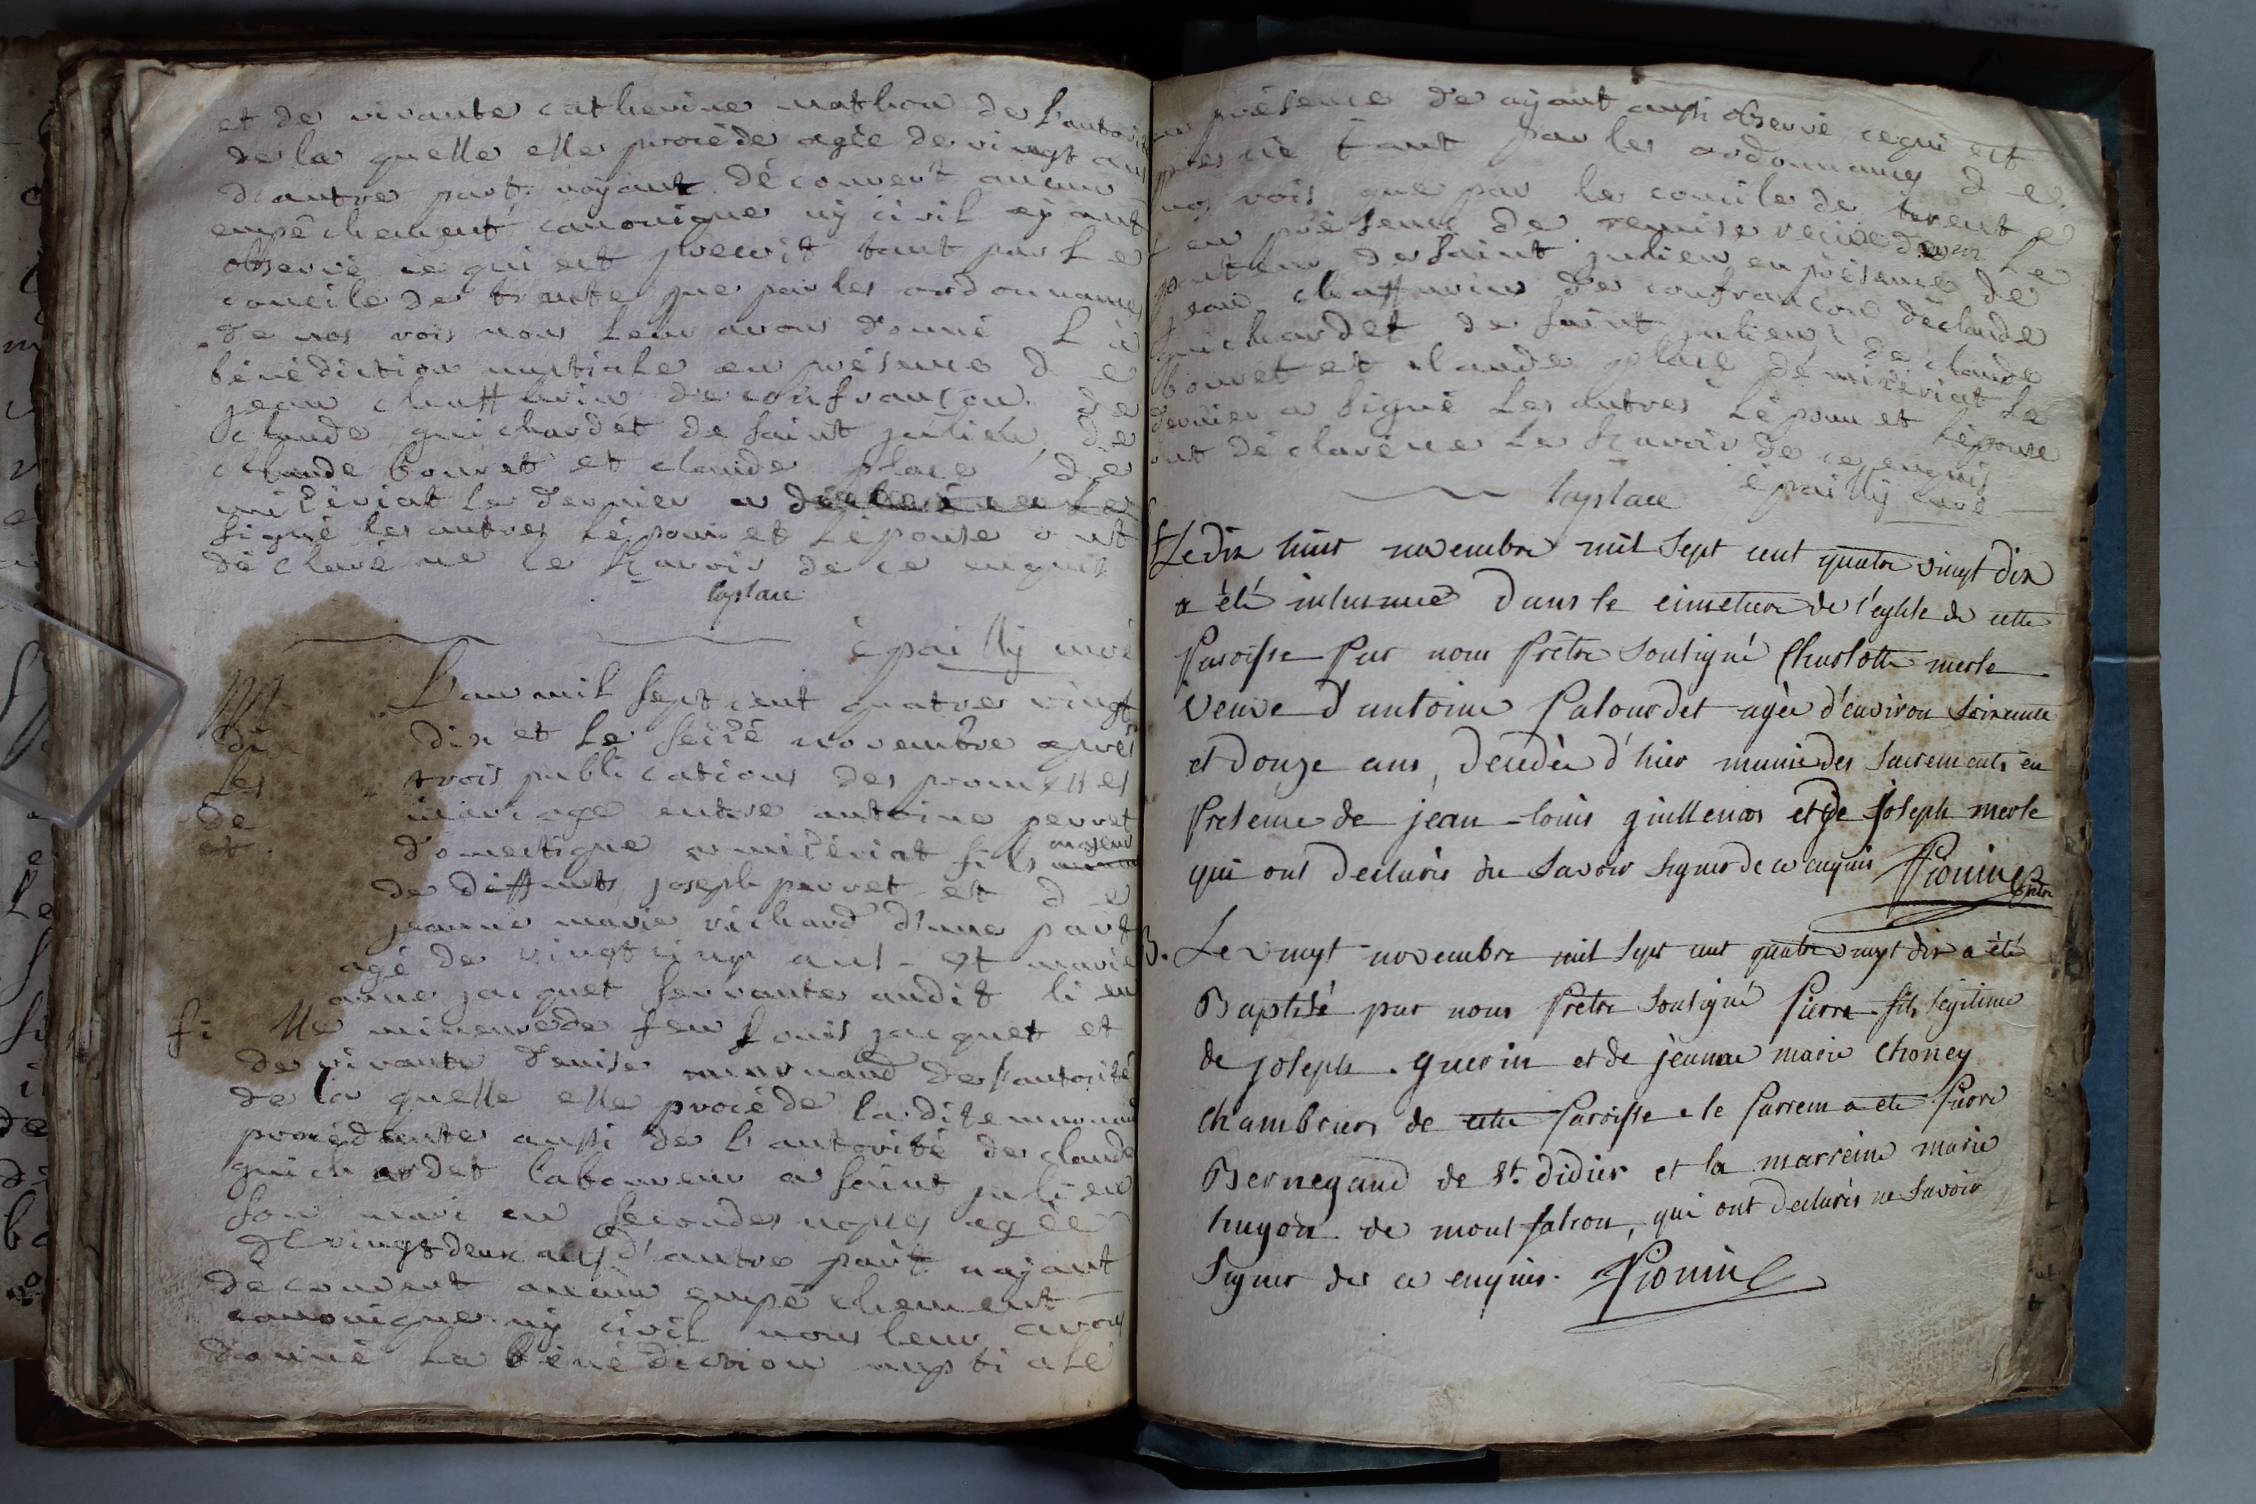 et de vivante catherine mathon de l'autorité
de la quelle elle procéde agée de vingt ans
d'autre part. nayant découvert aucun
empêchement canonique ny civil eyant
observé ce qui est prescrit tant par le
concile de trente que par les ordonnances
de nos rois nous leur avons donné la
bénédiction nuptiale en présence de
jean chaffurin de confrançon. de
claude guichardet de saint julien, de
claude bouvet et claude place de
miZériat le dernier a
signé les autres l'époux et l'épouse ont
déclaré ne le sçavoir de ce enquis
laplace
épailly curé
M L'an mil sept cent quatre vingt
dix et le seiZe novembre aprés
les trois publications des promesses
de mariage entre antoine perret
et domestique a miZériat fils majeur
de deffunts joseph perret et de
jeanne marie richard d'une part
agé de vingt cinq ans - et marie
anne jacquet servante audit lieu
fille mineure de feu louis jacquet et
de vivante denise de l'autorité
de la quelle elle procéde la dite
procédante aussi de l'autorité de claude
guichardet laboureur a saint julien
son mari en secondes noces agée
de vingt deux ans d'autre part nayant
découvert aucun empêchement
canonique ny civil nous leur avons
donné la bénédiction nuptiale
en présence de ayant aussi observé ce qui est
prescrit tant par les ordonnances de
nos rois que par les concile de trente
en présence de remise le
de saint julien en présence de
jean chaffurin de confrançon de claude
guichardet de saint julien, de claude
bouvet et claude place de miZériat le
dernier a signé les autres l'époux et l'épouse
ont déclaré ne le sçavoir de ce enquis
laplace épailly curé
Le dix huit novembre mil sept cent quatre vingt dix
a été inhumée dans le cimetiere de l'eglise de cette
Paroisse par nous Prêtre soussigné Charlotte merle
veuve d'antoine Palourdet agée d'environ soixante
et douze ans, decedée d'hier munie des sacrements en
Presence de jean-louis guillemos et de Joseph merle
qui ont declarés ne savoir signer de ce enquis Pionin prêtre
B. Le vingt novembre mil sept cent quatre vingt dix a été
Baptisé par nous Prêtre soussigné Pierre fils legitime
de joseph guerin et de jeanne marie Choney
chambriers de cette Paroisse - le Parrein a eté Pierre
Bernegaud de St. didier et la marreine marie
hugon de mont falcon, qui ont declarés ne savoir
signer de ce enquis. Pionin